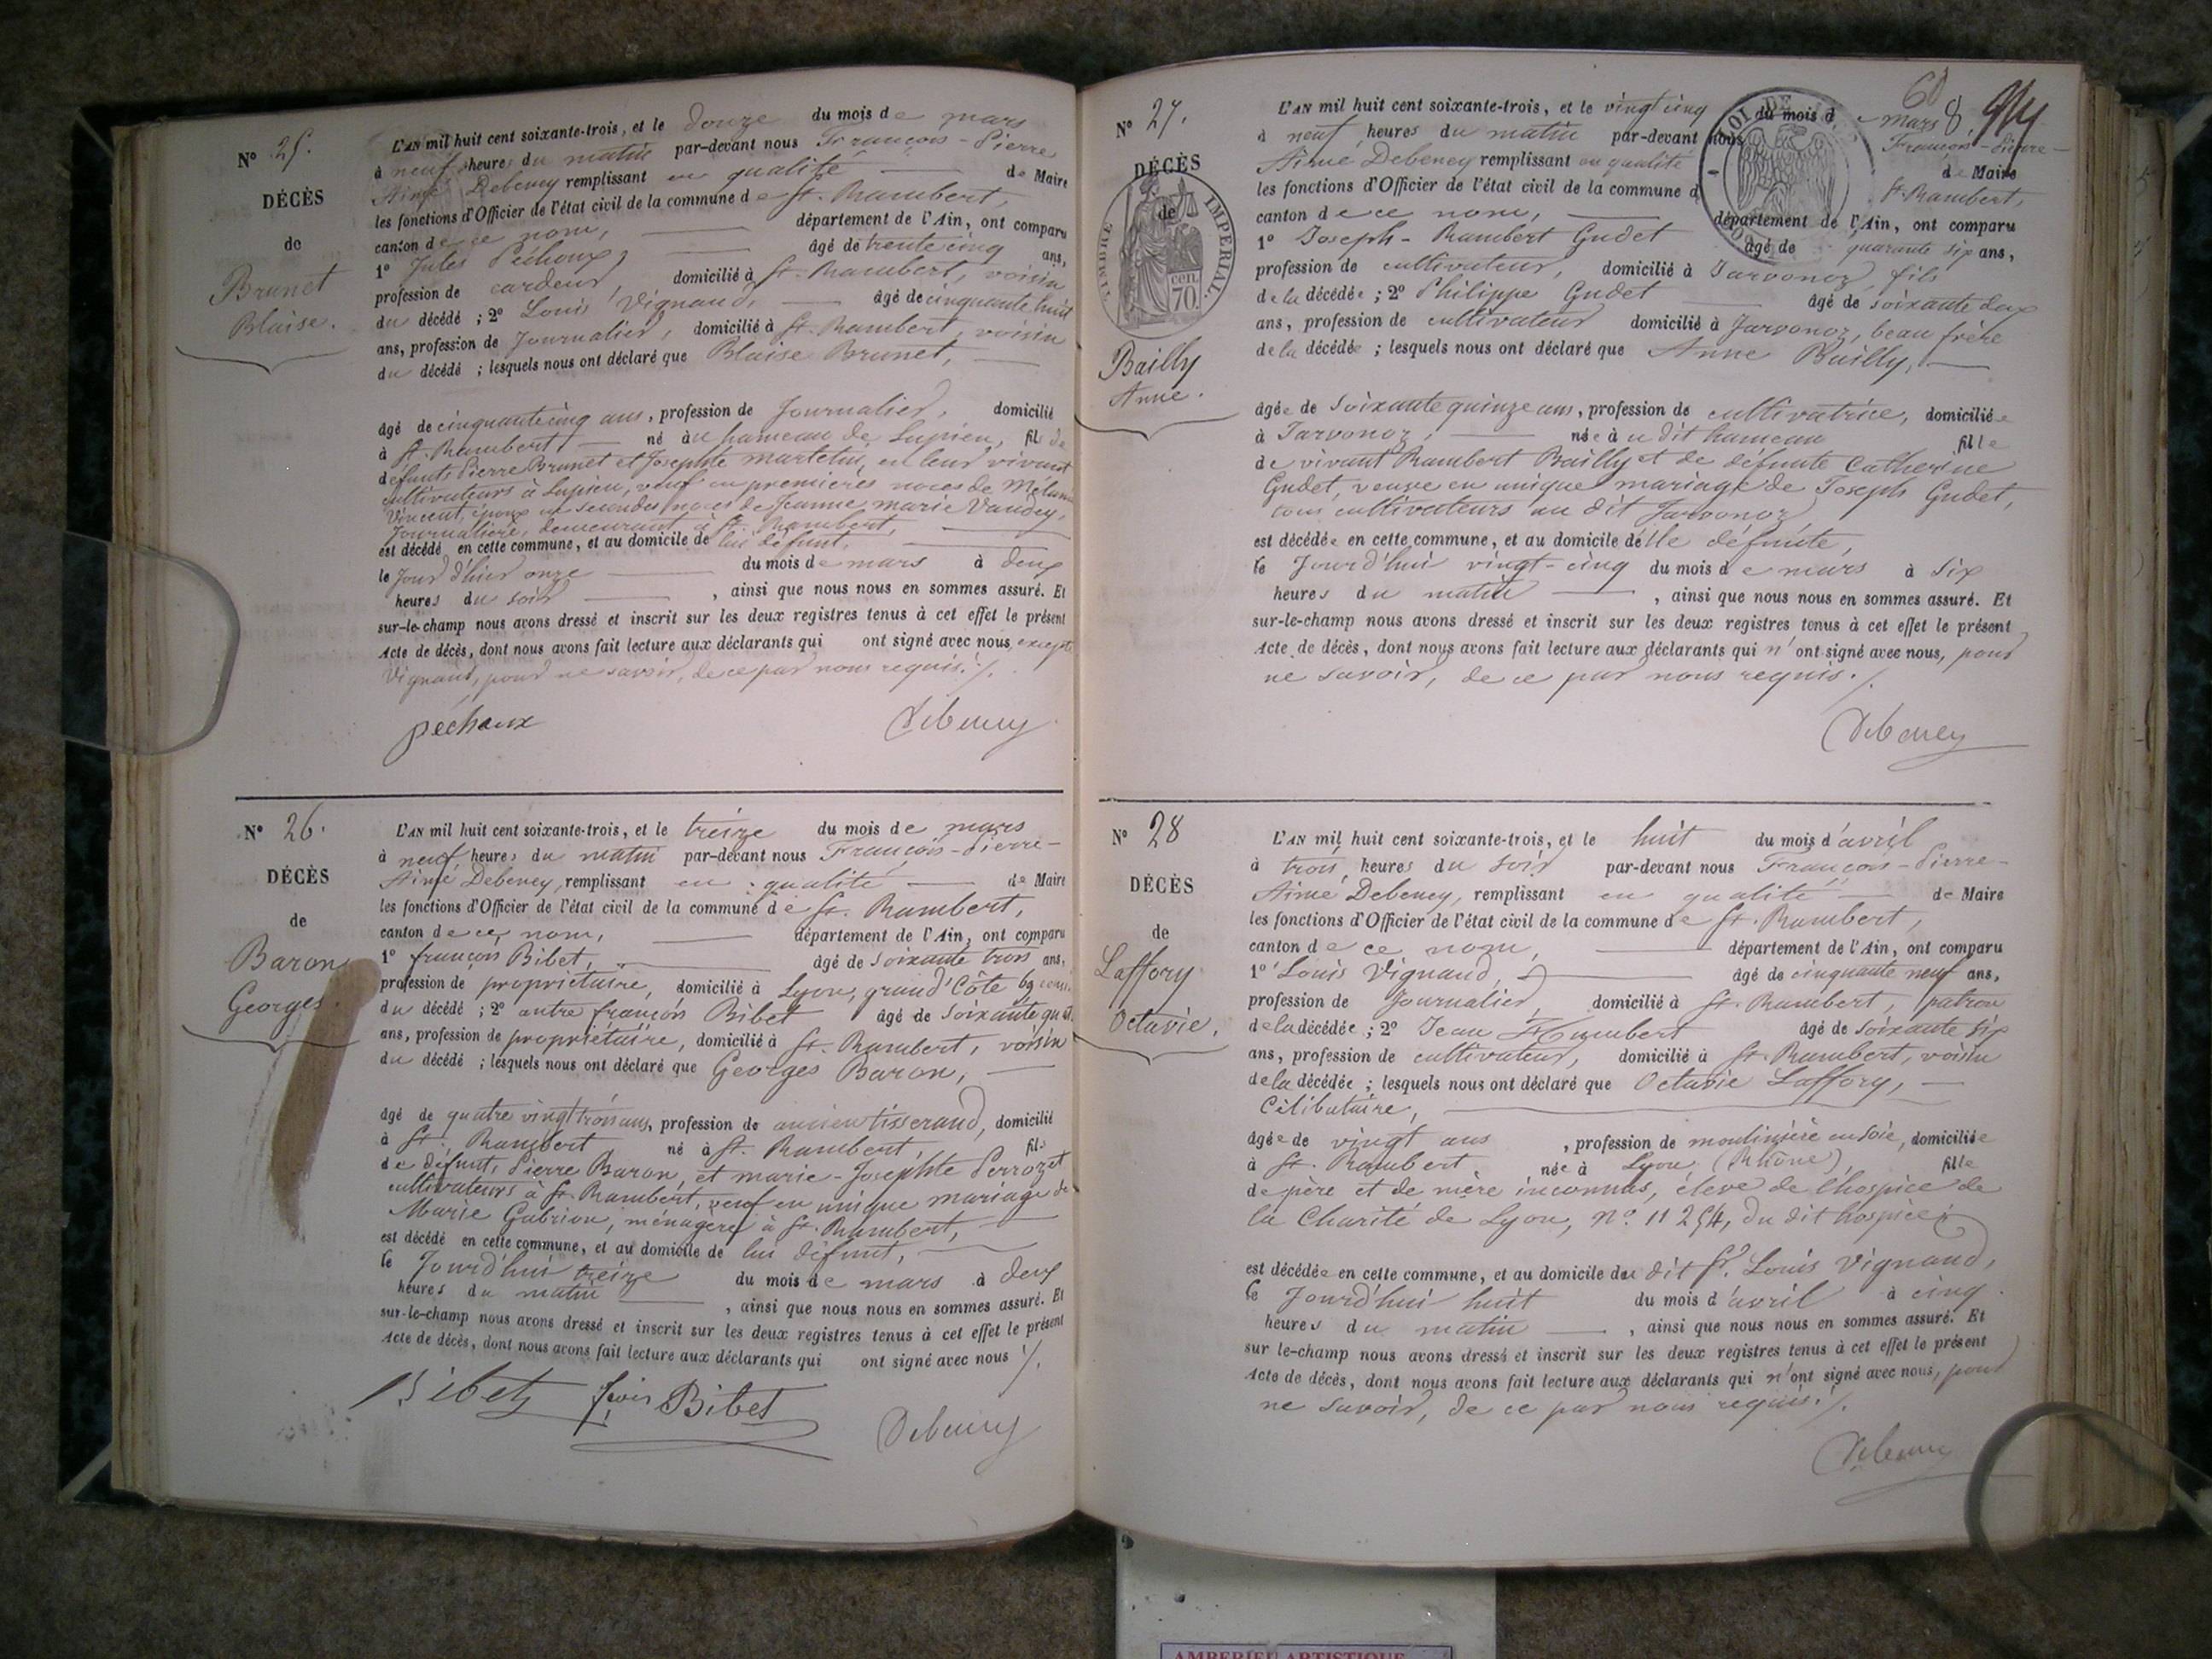 N° 25.
DÉCÈS
de
Brunet
Blaise.
L'AN mil huit cent soixante-trois, et le douze du mois de mars
à neuf heures du matin par-devant nous François-Pierre
Aimé Debeney remplissant en qualité de Maire
les fonctions d'Officier de l'état civil de la commune de St. Rambert,
canton de ce nom, département de l'Ain, ont comparu
1° Jules Péchoux, âgé de trente cinq ans,
profession de cardeur, domicilié à St. Rambert, voisin
du décédé ; 2° Louis Vignaud, âgé de cinquante huit
ans, profession de Journalier, domicilié à St. Rambert, voisin
du décédé ; lesquels nous ont déclaré que Blaise Brunet,
âgé de cinquante cinq ans, profession de Journalier, domicilié
à St. Rambert, né au hameau de Lupieu, fils de
défunts Pierre Brunet et Josephte Martetin, en leur vivant
cultivateurs à Lupieu, veuf en premières noces de Mélanie
Vincent, époux en secondes noces de Jeanne marie Vaudey,
Journalière, demeurant à St. Rambert,
est décédé en cette commune, et au domicile de lui défunt,
le Jour d'hier onze du mois de mars à deux
heures du soir, ainsi que nous nous en sommes assuré. Et
sur-le-champ nous avons dressé et inscrit sur les deux registres tenus à cet effet le présent
Acte de décès, dont nous avons fait lecture aux déclarants qui ont signé avec nous, excepté
Vignaud, pour ne savoir, de ce par nous requis ./.
péchoux Debeney
N° 26.
DÉCÈS
de
Baron
Georges.
L'AN mil huit cent soixante-trois, et le treize du mois de mars
à neuf heures du matin par-devant nous François-Pierre-
Aimé Debeney, remplissant en qualité de Maire
les fonctions d'Officier de l'état civil de la commune de St. Rambert,
canton de ce nom, département de l'Ain, ont comparu
1° françois Bibet, âgé de soixante trois ans,
profession de propriétaire, domicilié à Lyon, grand'Côte 69
du décédé ; 2° autre françois Bibet âgé de soixante
ans, profession de propriétaire, domicilié à St. Rambert, voisin
du décédé ; lesquels nous ont déclaré que Georges Baron,
âgé de quatre vingt trois ans, profession de ancien tisserand, domicilié
à St. Rambert né à St. Rambert, fils
de défunts Pierre Baron, et marie-Josephte Perrozet
cultivateurs à St. Rambert, veuf en unique mariage de
Marie Gabrion, ménagère à St. Rambert,
est décédé en cette commune, et au domicile de lui défunt,
le Jourd'hui treize du mois de mars à deux
heures du matin, ainsi que nous nous en sommes assuré. Et
sur-le-champ nous avons dressé et inscrit sur les deux registres tenus à cet effet le présent
Acte de décès, dont nous avons fait lecture aux déclarants qui ont signé avec nous ./.
Bibet fçois Bibet Debeney
60
N° 27.
DÉCÈS
de
TIMBRE IMPERIAL.
70 cen.
Bailly
Anne.
L'AN mil huit cent soixante-trois, et le vingt cinq du mois de mars
à neuf heures du matin par-devant nous François-Pierre-
Aimé Debeney remplissant en qualité de Maire
les fonctions d'Officier de l'état civil de la commune de St. Rambert,
canton de ce nom, département de l'Ain, ont comparu
1° Joseph-Rambert Gudet âgé de quarante six ans,
profession de cultivateur, domicilié à Javornoz, fils
de la décédée ; 2° Philippe Gudet âgé de soixante deux
ans, profession de cultivateur domicilié à Javornoz, beau frère
de la décédée ; lesquels nous ont déclaré que Anne Bailly,
âgée de soixante quinze ans, profession de cultivatrice, domiciliée
à Javornoz, née au dit hameau fille
de vivant Rambert Bailly et de défunte Catherine
Gudet, veuve en unique mariage de Joseph Gudet,
tous cultivateurs au dit Javornoz,
est décédée en cette commune, et au domicile d'elle défunte,
le Jourd'hui vingt-cinq du mois de mars à six
heures du matin, ainsi que nous nous en sommes assuré. Et
sur-le-champ nous avons dressé et inscrit sur les deux registres tenus à cet effet le présent
Acte de décès, dont nous avons fait lecture aux déclarants qui n'ont signé avec nous, pour
ne savoir, de ce par nous requis ./.
Debeney
N° 28
DÉCÈS
de
Laffory
Octavie.
L'AN mil huit cent soixante-trois, et le huit du mois d'avril
à trois heures du soir par-devant nous François-Pierre-
Aimé Debeney, remplissant en qualité de Maire
les fonctions d'Officier de l'état civil de la commune de St. Rambert,
canton de ce nom, département de l'Ain, ont comparu
1° Louis Vignaud, âgé de cinquante neuf ans,
profession de Journalier, domicilié à St. Rambert, patron
de la décédée ; 2° Jean Humbert âgé de soixante six
ans, profession de cultivateur, domicilié à St. Rambert, voisin
de la décédée ; lesquels nous ont déclaré que Octavie Laffory,
Célibataire,
âgée de vingt ans, profession de moulinière en soie, domiciliée
à St. Rambert, née à Lyon, (Rhône), fille
de père et de mère inconnus, élève de l'hospice de
la Charité de Lyon, n°. 11254, du dit hospice
est décédée en cette commune, et au domicile du dit Sr. Louis Vignaud,
le Jourd'hui huit du mois d'avril à cinq
heures du matin, ainsi que nous nous en sommes assuré. Et
sur le-champ nous avons dressé et inscrit sur les deux registres tenus à cet effet le présent
Acte de décès, dont nous avons fait lecture aux déclarants qui n'ont signé avec nous, pour
ne savoir, de ce par nous requis ./.
Debeney
AMBERIEU ARTISTIQUE